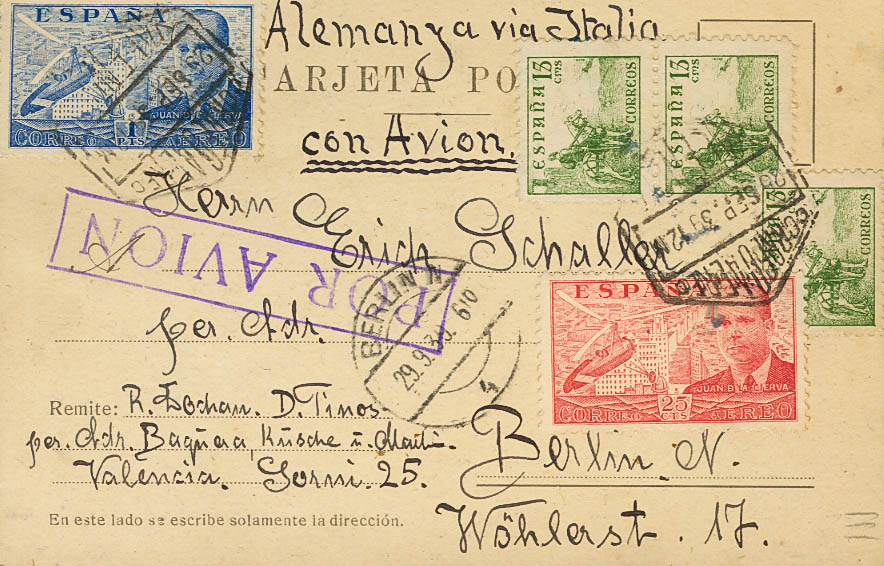 Alemanya via Italia
ARJETA PO
con Avion.
ESPAÑA
JUAN DE LA CIERVA
1
PTS
CORREO AEREO
ESPAÑA 15 CMS
CORREOS
ESPAÑA 15 CMS
CORREOS
15
CORREOS
Herrn
Erich Schaller
POR AVION
A
29 SEP. 39 12M
BERLIN N
29.9.39. 6 10
4
per. Adr.
ESPAÑA
JUAN DE LA CIERVA
25
CTS
CORREO AEREO
Remite: R. D. Tinos
per. Adr. Baquera, Kusche u. Martin
Valencia. Sorni. 25.
Berlin. N.
Wöhlerst. 17.
En este lado se escribe solamente la dirección.